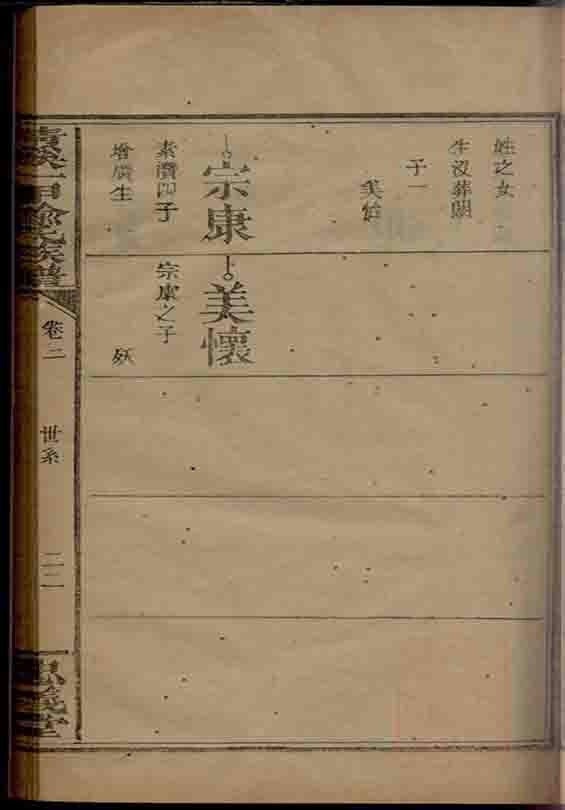 姓之女
生沒葬闕
子一
美怡
宗康
素瀆四子
增廣生
美懷
宗康之子
殀
族譜
卷二
世系
二二
忠義堂